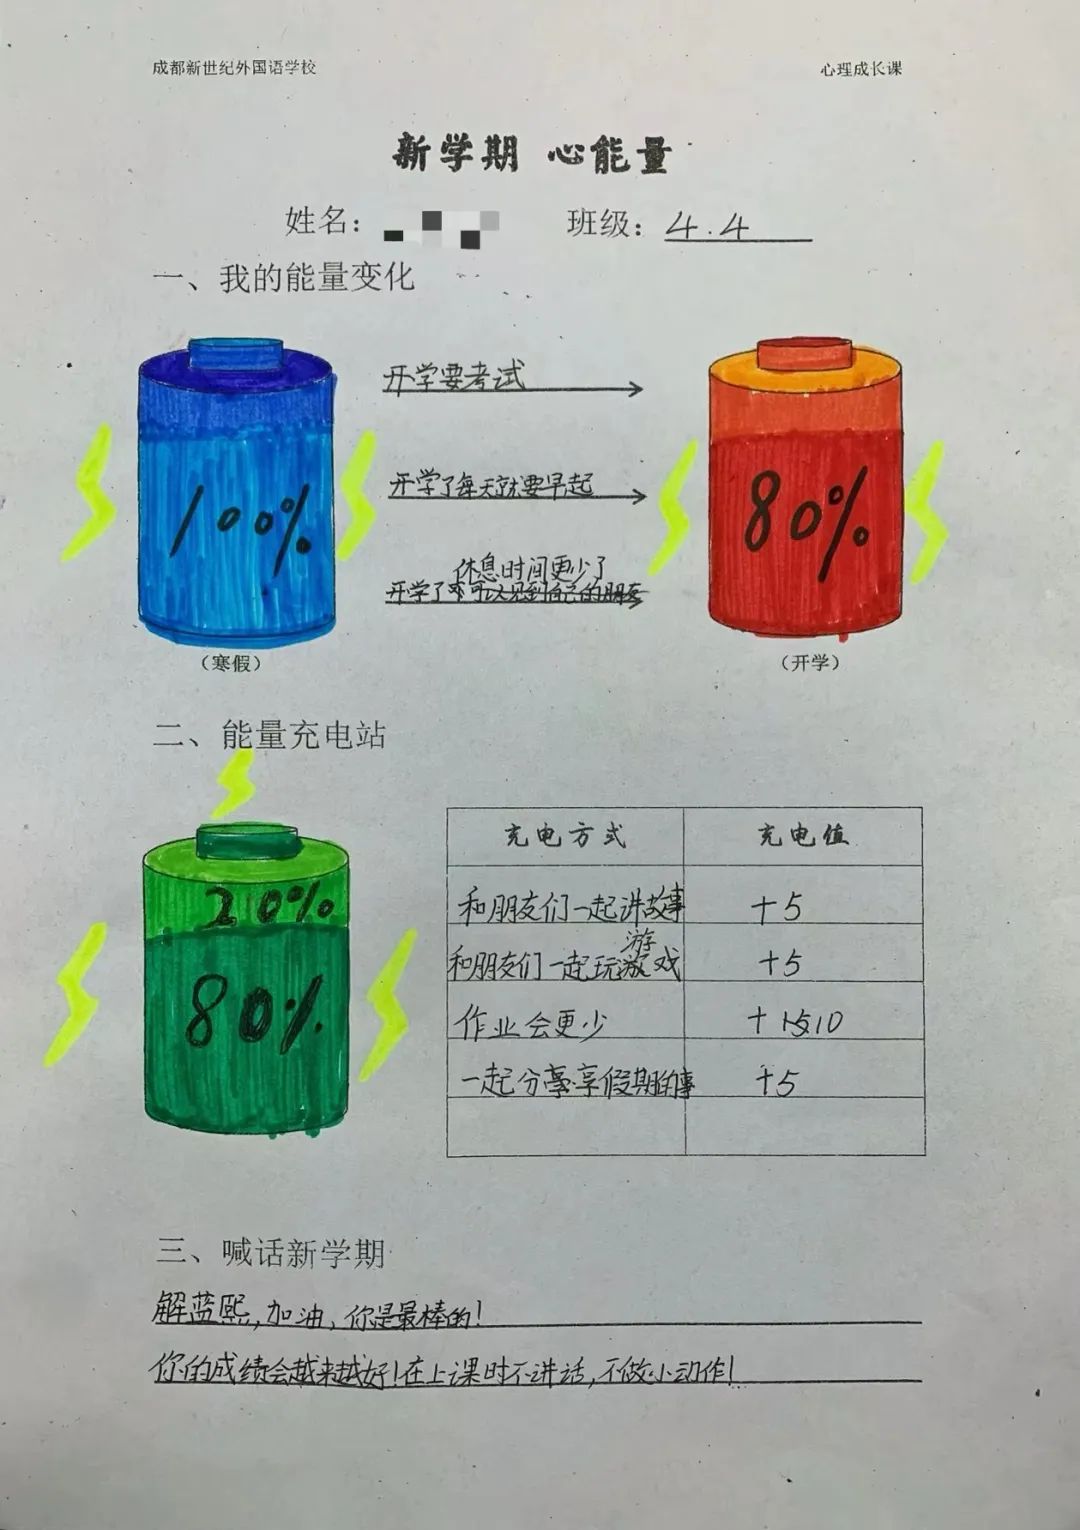 成都新世纪外国语学校
心理成长课
新学期 心能量
姓名：
班级：4.4
一、我的能量变化
开学要考试
开学了每天就要早起
休息时间更少了
开学了不可以见到自己的朋友
100%
80%
（寒假）
（开学）
二、能量充电站
20%
80%
充电方式 充电值
和朋友们一起讲故事 +5
和朋友们一起玩游戏 +5
作业会更少 +10
一起分享假期的事 +5
三、喊话新学期
解蓝熙,加油,你是最棒的!
你的成绩会越来越好!在上课时不讲话,不做小动作!